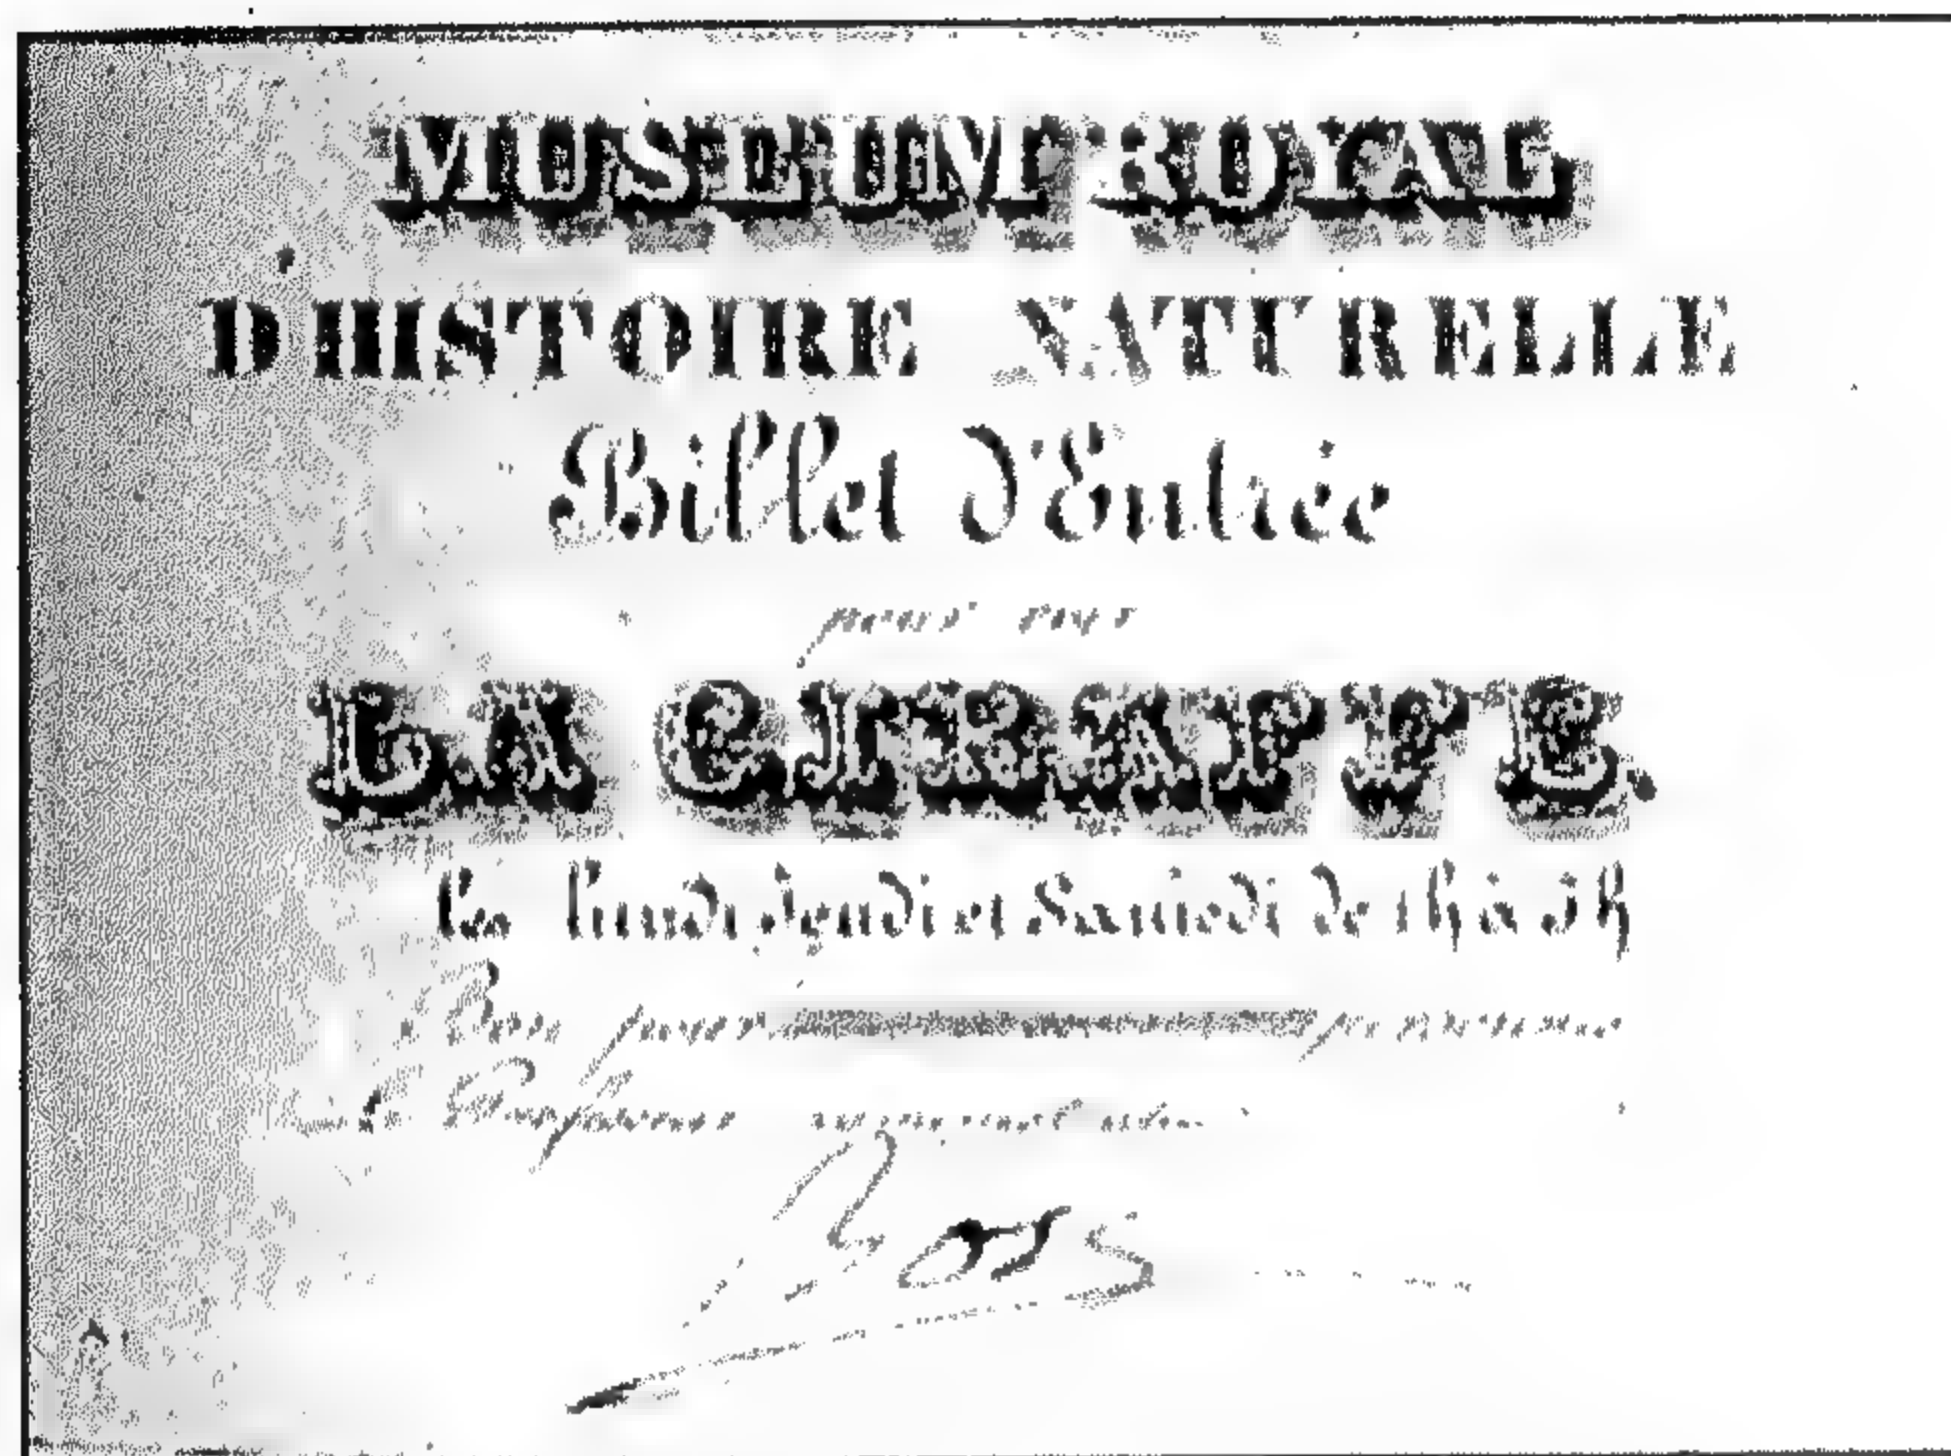 MUSEUM ROYAL
D'HISTOIRE NATURELLE
Billet d'Entrée
pour voir
LA GIRAFFE.
les lundi Jeudi et Samedi de 1h à 3h
Bon pour personnes
le Professeur